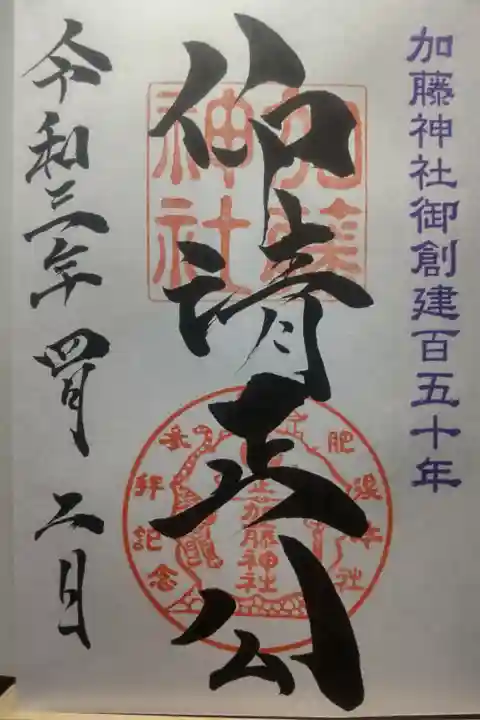 加藤神社御創建百五十年
仰清正公
加藤
神社
加藤神社
参拝記念
令和三年四月二日